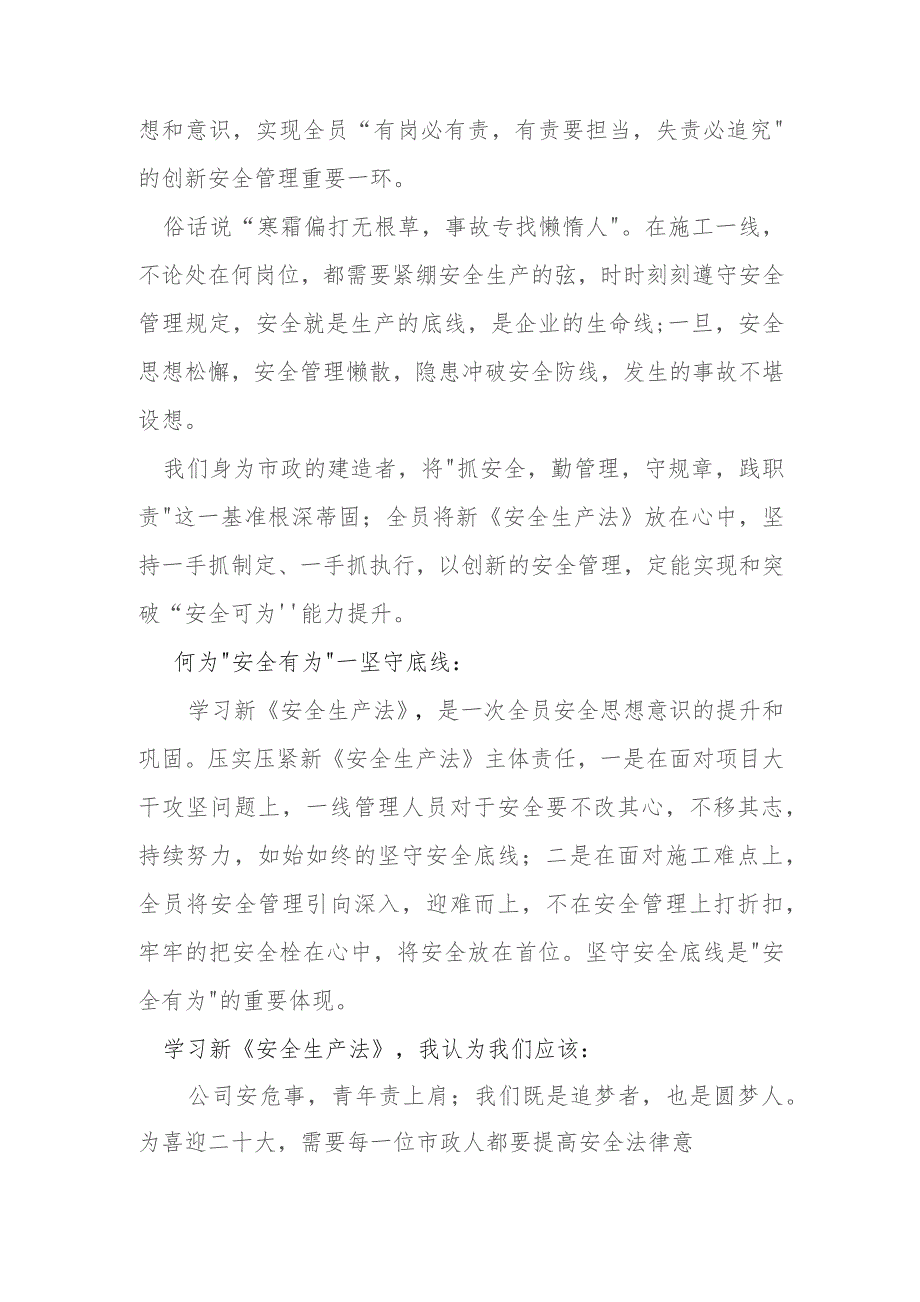 想和意识，实现全员“有岗必有责，有责要担当，失责必追究"
的创新安全管理重要一环。
俗话说“寒霜偏打无根草，事故专找懒惰人"。在施工一线，
不论处在何岗位，都需要紧绷安全生产的弦，时时刻刻遵守安全
管理规定，安全就是生产的底线，是企业的生命线;一旦，安全
思想松懈，安全管理懒散，隐患冲破安全防线，发生的事故不堪
设想。
我们身为市政的建造者，将"抓安全，勤管理，守规章，践职
责"这一基准根深蒂固；全员将新《安全生产法》放在心中，坚
持一手抓制定、一手抓执行，以创新的安全管理，定能实现和突
破“安全可为''能力提升。
何为"安全有为"一坚守底线：
学习新《安全生产法》，是一次全员安全思想意识的提升和
巩固。压实压紧新《安全生产法》主体责任，一是在面对项目大
干攻坚问题上，一线管理人员对于安全要不改其心，不移其志，
持续努力，如始如终的坚守安全底线；二是在面对施工难点上，
全员将安全管理引向深入，迎难而上，不在安全管理上打折扣，
牢牢的把安全栓在心中，将安全放在首位。坚守安全底线是"安
全有为"的重要体现。
学习新《安全生产法》，我认为我们应该：
公司安危事，青年责上肩；我们既是追梦者，也是圆梦人。
为喜迎二十大，需要每一位市政人都要提高安全法律意